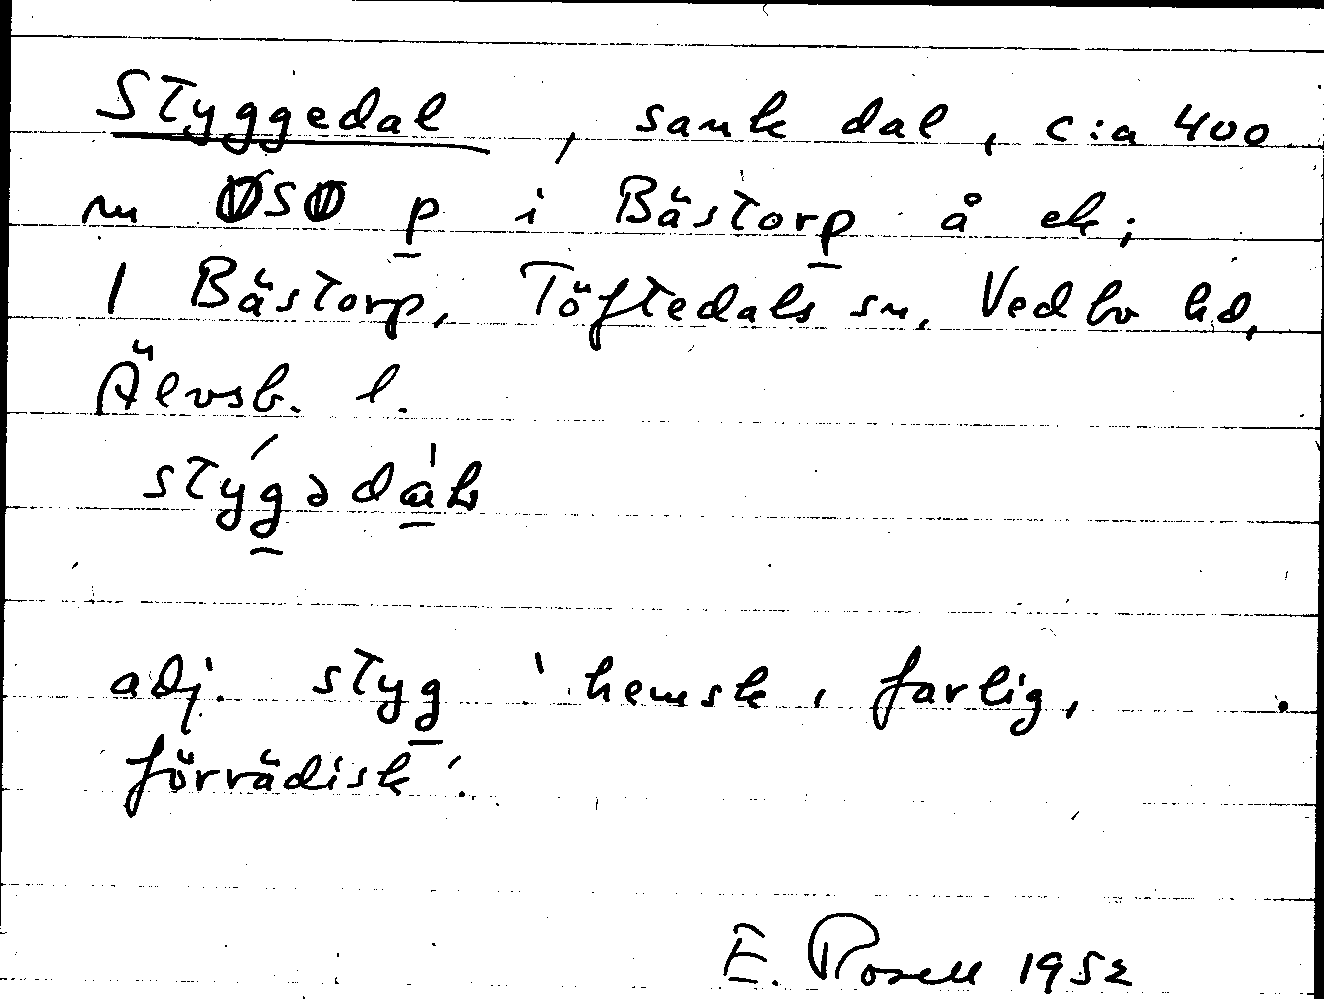 Styggedal, sank dal, c:a 400
m OSO p i Bästorp å ek;
1 Bästorp, Töftedals sn, Vedbo hd,
Älvsb. l.
stýgədàḷ
adj. styg 'hemsk, farlig,
förrädisk'.
E. Rosell 1952